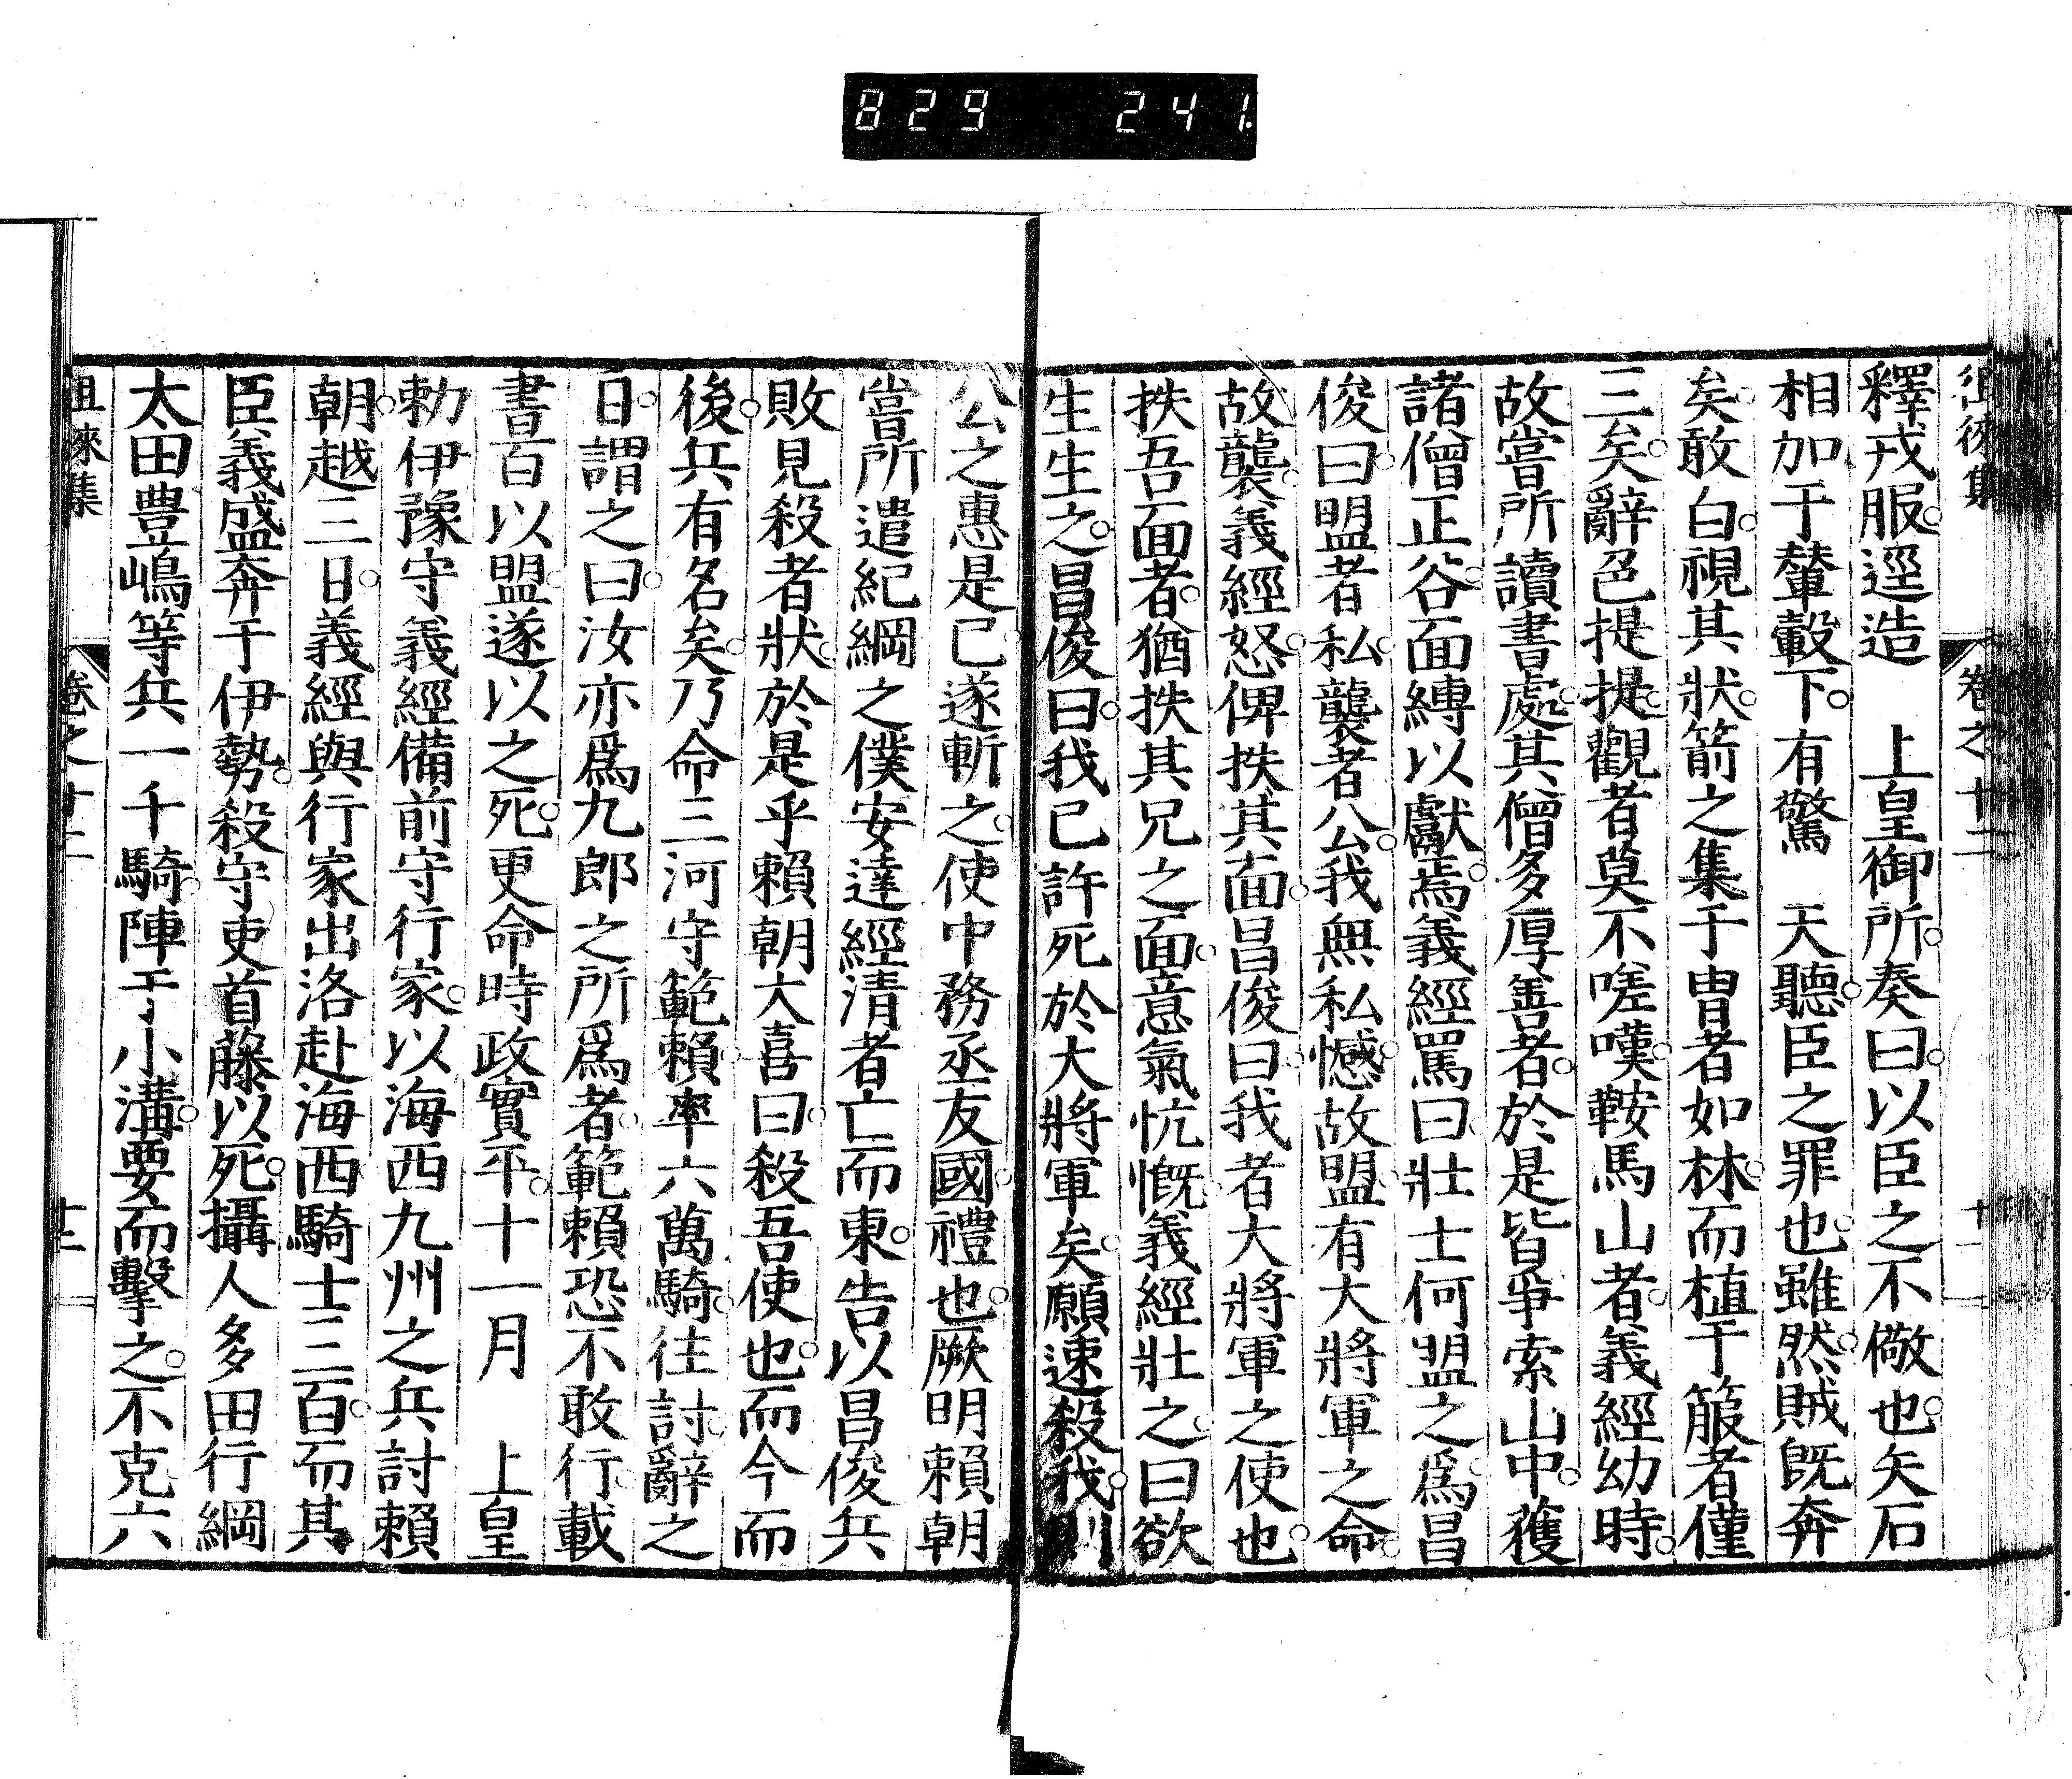 829 241.
徂徠集 卷之十二 十一
釋戎服。逕造 上皇御所。奏曰。以臣之不儆也。矢石
相加于輦轂下。有驚 天聽。臣之罪也。雖然。賊旣奔
矣。敢白。視其狀。箭之集于冑者如林。而植于箙者僅
三矣。辭色提提。觀者莫不嗟嘆。鞍馬山者。義經幼時。
故嘗所讀書處。其僧多厚善者。於是皆爭索山中。獲
諸僧正谷。面縛以獻焉。義經罵曰。壯士何盟之爲。昌
俊曰。盟者私。襲者公。我無私憾。故盟。有大將軍之命。
故襲。義經怒。俾抶其面。昌俊曰。我者大將軍之使也。
抶吾面者。猶抶其兄之面。意氣忼慨。義經壯之。曰欲
生生之。昌俊曰。我已許死於大將軍矣。願速殺我。則
公之惠是已。遂斬之。使中務丞友國禮也。厥明賴朝
嘗所遣紀綱之僕安達經清者亡而東。告以昌俊兵
敗見殺者狀。於是乎賴朝大喜曰。殺吾使也。而今而
後。兵有名矣。乃命三河守範賴。率六萬騎。往討。辭之
日。謂之曰。汝亦爲九郎之所爲者。範賴恐不敢行。載
書百以盟。遂以之死。更命時政實平。十一月 上皇
勅伊豫守義經備前守行家。以海西九州之兵討賴
朝。越三日。義經與行家出洛赴海西。騎士三百。而其
臣義盛奔于伊勢。殺守吏首藤以死。攝人多田行綱
太田豊嶋等兵一千騎。陣于小溝。要而擊之。不克。六
徂徠集 卷之十二 十二